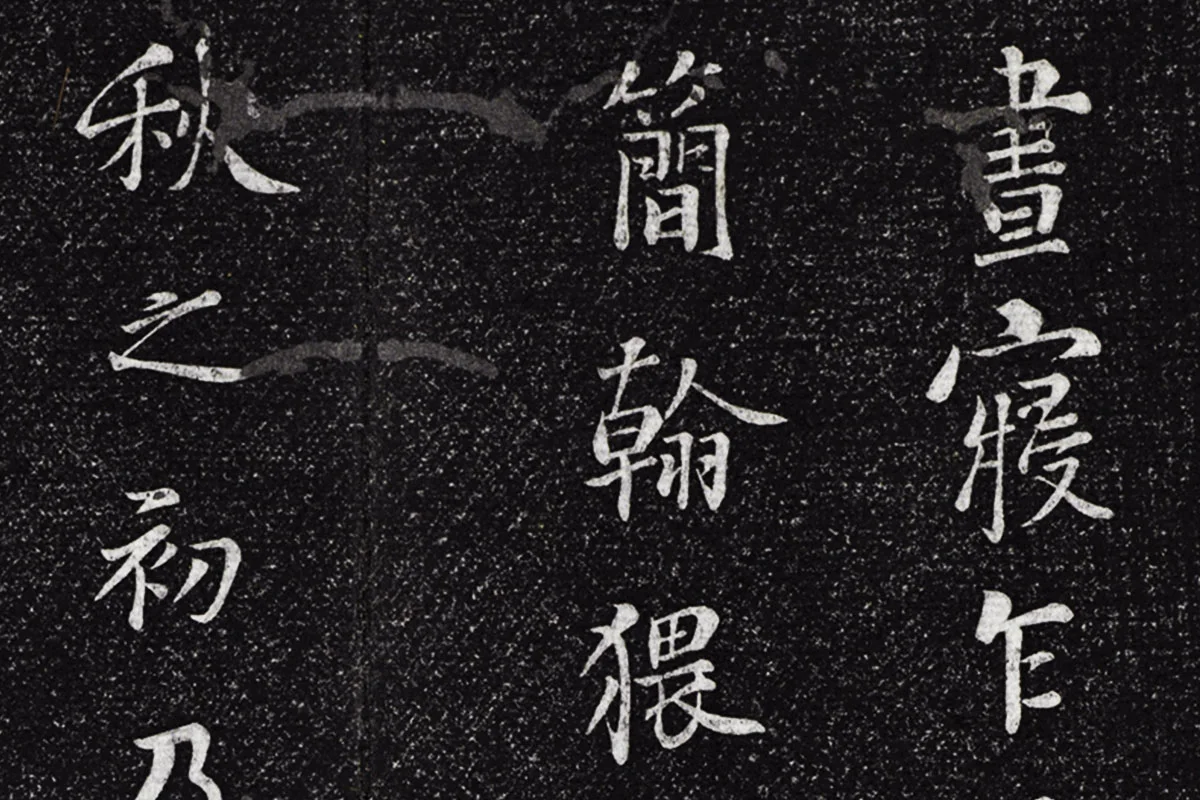 晝寢乍
簡翰猥
秋之初乃